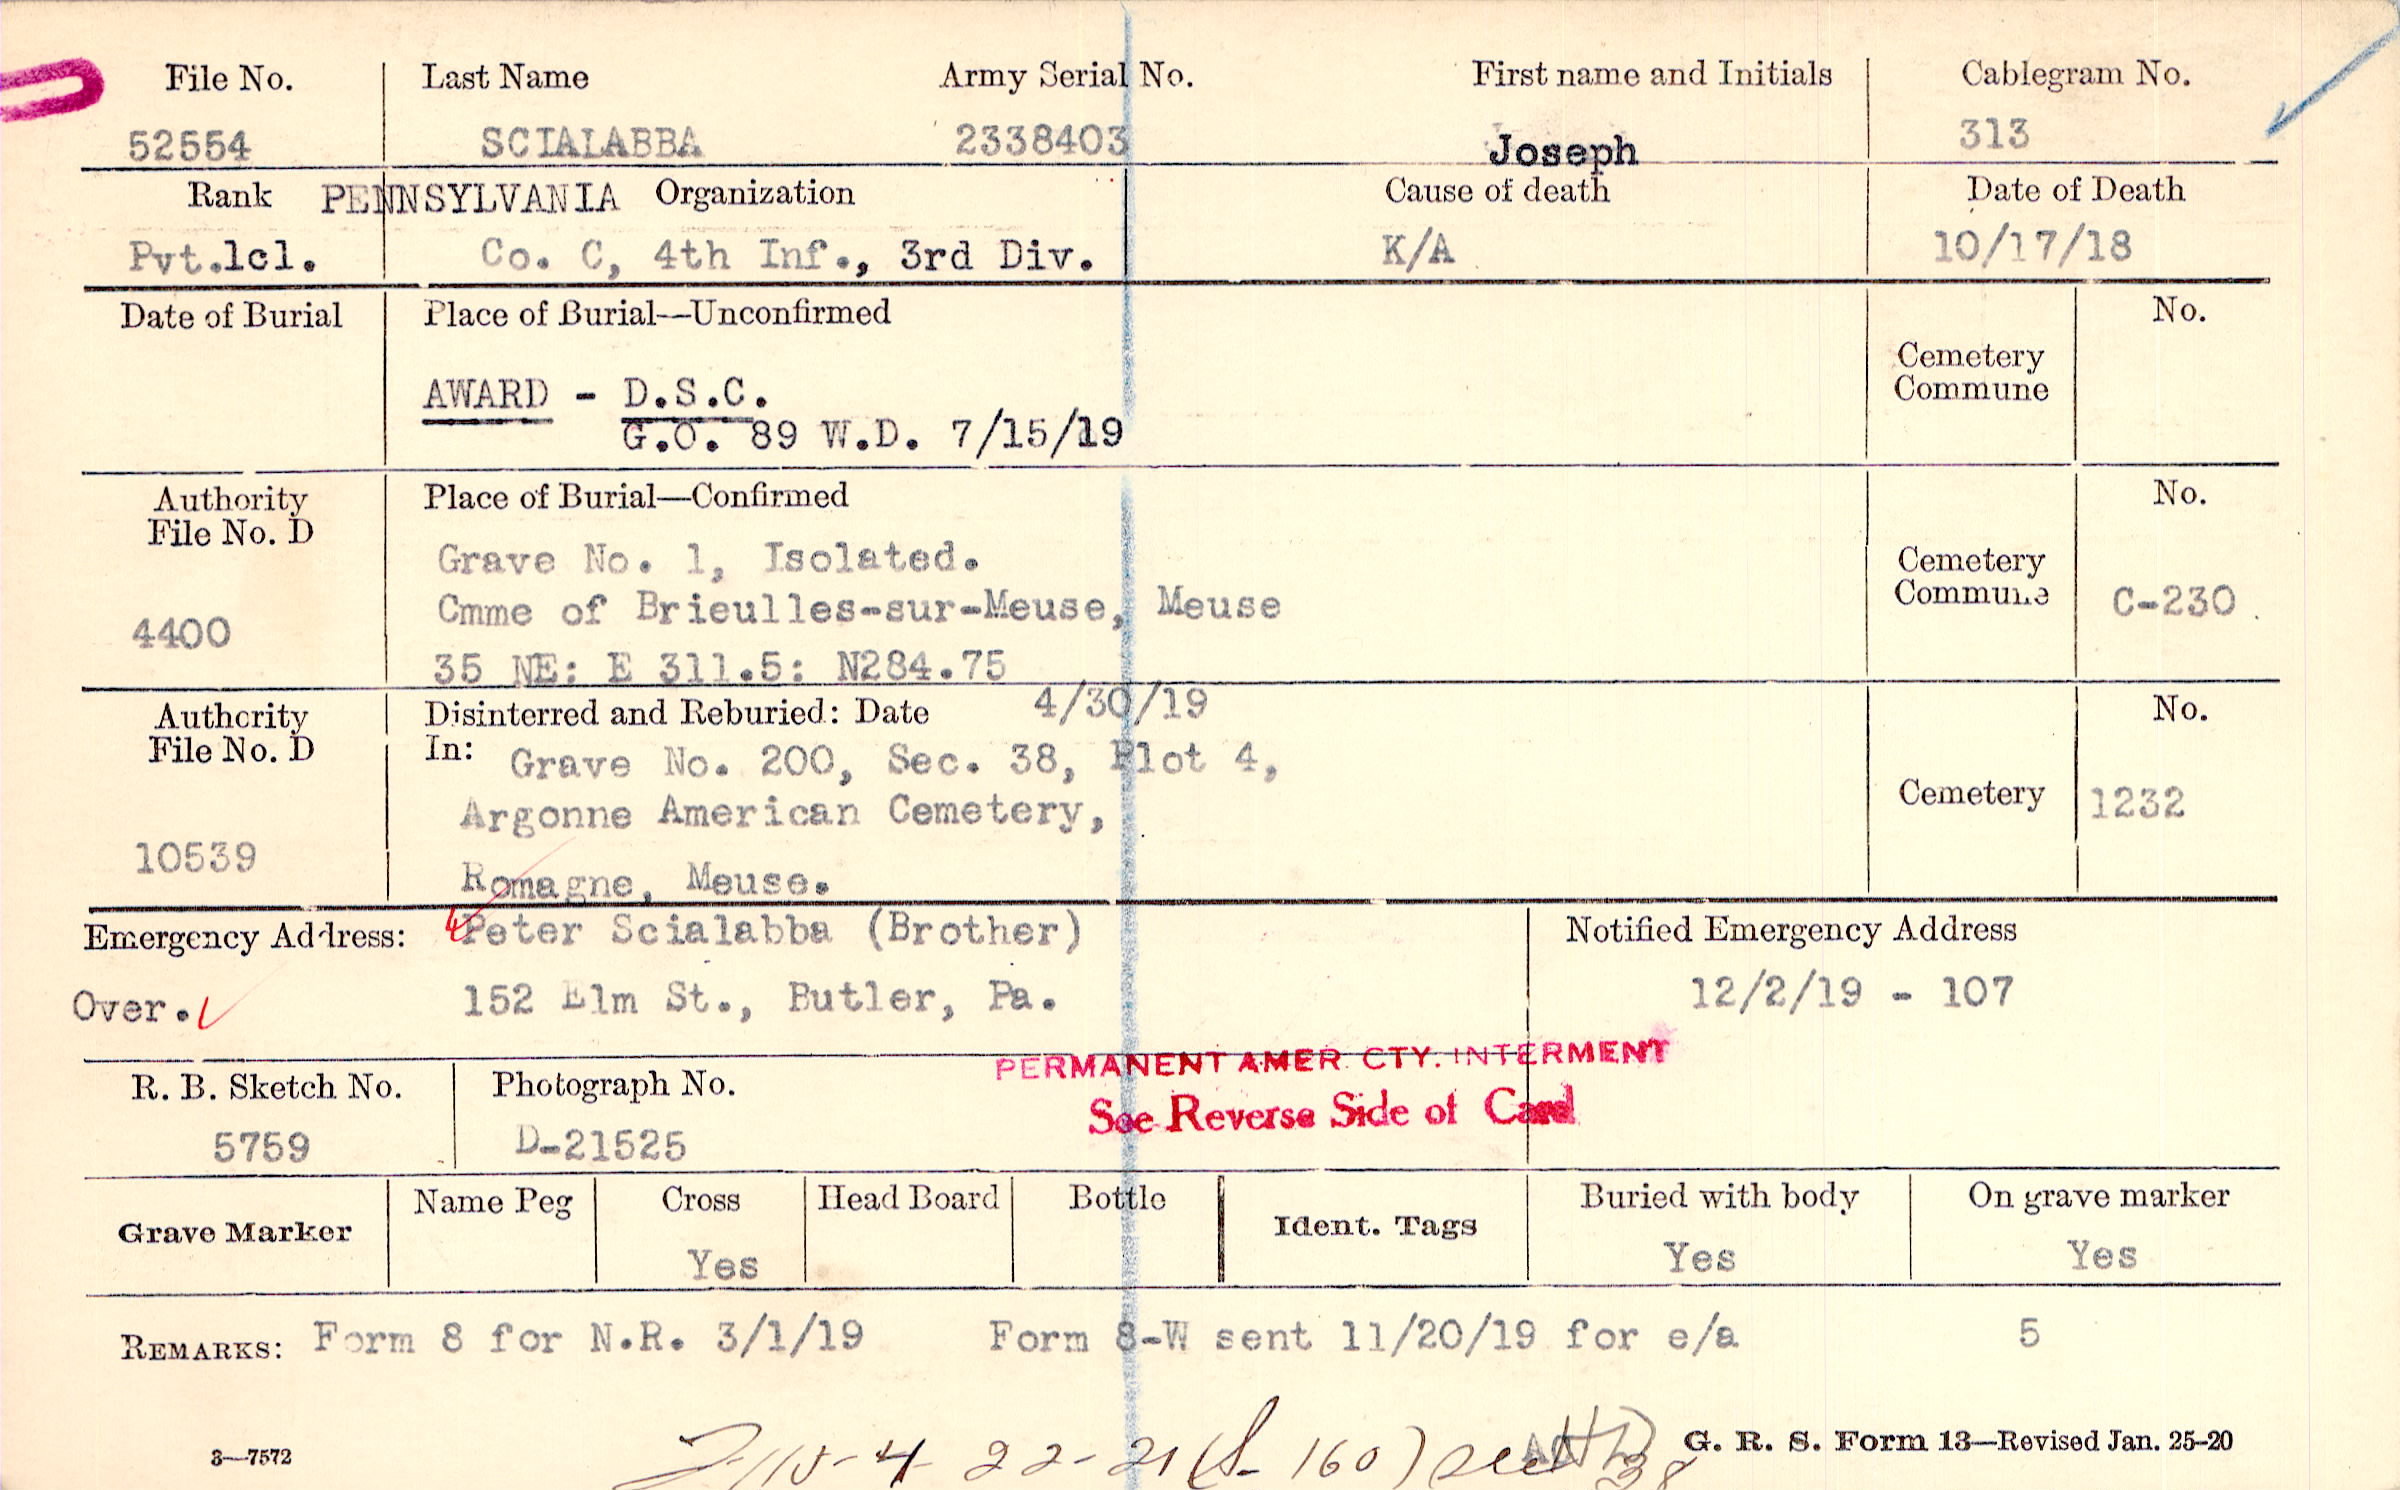 File No. Last Name Army Serial No. First name and Initials Cablegram No.
52554 SCIALABBA 2338403 Joseph 313
Rank PENNSYLVANIA Organization Cause of death Date of Death
Pvt.1cl. Co. C, 4th Inf., 3rd Div. K/A 10/17/18
Date of Burial Place of Burial—Unconfirmed No.
Cemetery
Commune
AWARD - D.S.C.
G.O. 89 W.D. 7/15/19
Authority Place of Burial—Confirmed No.
File No. D
Grave No. 1, Isolated. Cemetery
Cmme of Brieulles-sur-Meuse, Meuse Commune C-230
4400
35 NE: E 311.5: N284.75
Authority Disinterred and Reburied: Date 4/30/19 No.
File No. D In: Grave No. 200, Sec. 38, Plot 4,
Argonne American Cemetery, Cemetery 1232
10539
Romagne, Meuse.
Emergency Address: Peter Scialabba (Brother) Notified Emergency Address
Over. 152 Elm St., Butler, Pa. 12/2/19 - 107
PERMANENT AMER. CTY. INTERMENT
R. B. Sketch No. Photograph No. See Reverse Side of Card
5759 D-21525
Grave Marker Name Peg Cross Head Board Bottle Ident. Tags Buried with body On grave marker
Yes Yes Yes
REMARKS: Form 8 for N.R. 3/1/19 Form 8-W sent 11/20/19 for e/a 5
4-22-21 (S-160)
3—7572 G. R. S. Form 13—Revised Jan. 25-20